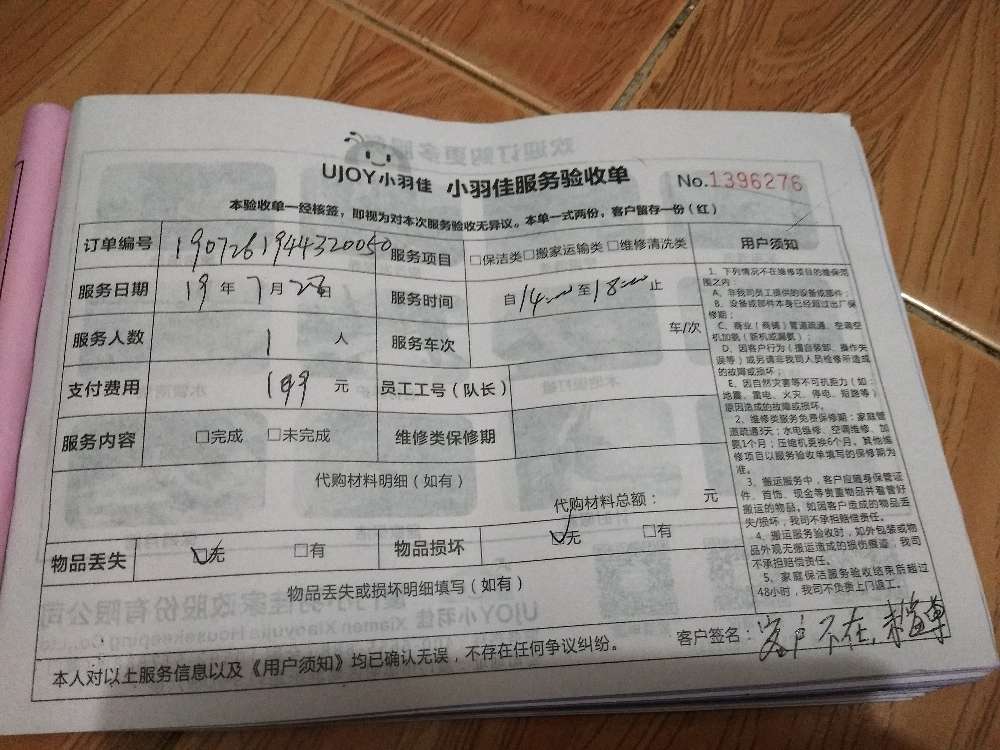 UJOY小羽佳 小羽佳服务验收单 No.1396276
本验收单一经核签，即视为对本次服务验收无异议。本单一式两份，客户留存一份（红）
订单编号 1907261944320050 服务项目 □保洁类□搬家运输类□维修清洗类
服务日期 19年7月28日 服务时间 自14:00至18:00止
服务人数 1人 服务车次 车/次
支付费用 199元 员工工号（队长）
服务内容 □完成 □未完成 维修类保修期
代购材料明细（如有）
代购材料总额： 元
物品丢失 ☑无 □有 物品损坏 ☑无 □有
物品丢失或损坏明细填写（如有）
用户须知
1、下列情况不在维修项目的维保范
围之内：
A、非我司员工提供的设备或部件；
B、设备或部件本身已经超过出厂保
修期；
C、商业（商铺）管道疏通、空调空
机加氨（新机或漏氨）；
D、因客户行为（擅自装卸、操作失
误等）或另请非我司人员检修所造成
的故障或损坏
E、因自然灾害等不可抗拒力（如：
地震、雷电、火灾、停电、短路等）
原因造成的故障或损坏。
2、维修类服务免费保修期：家庭管
道疏通3天；水电维修、空调维修、加
氨1个月；压缩机更换6个月。其他维
修项目以服务验收单填写的保修期为
准。
3、搬运服务中，客户应随身保管证
件、首饰、现金等贵重物品并看管好
搬运的物品。如因客户造成的物品丢
失/损坏，我司不承担赔偿责任。
4、搬运服务验收时，如外包装或物
品外观无搬运造成的损伤痕迹，我司
不承担赔偿责任。
5、家庭保洁服务验收结束后超过
48小时，我司不负责上门返工。
本人对以上服务信息以及《用户须知》均已确认无误，不存在任何争议纠纷。 客户签名：客户不在，未签单